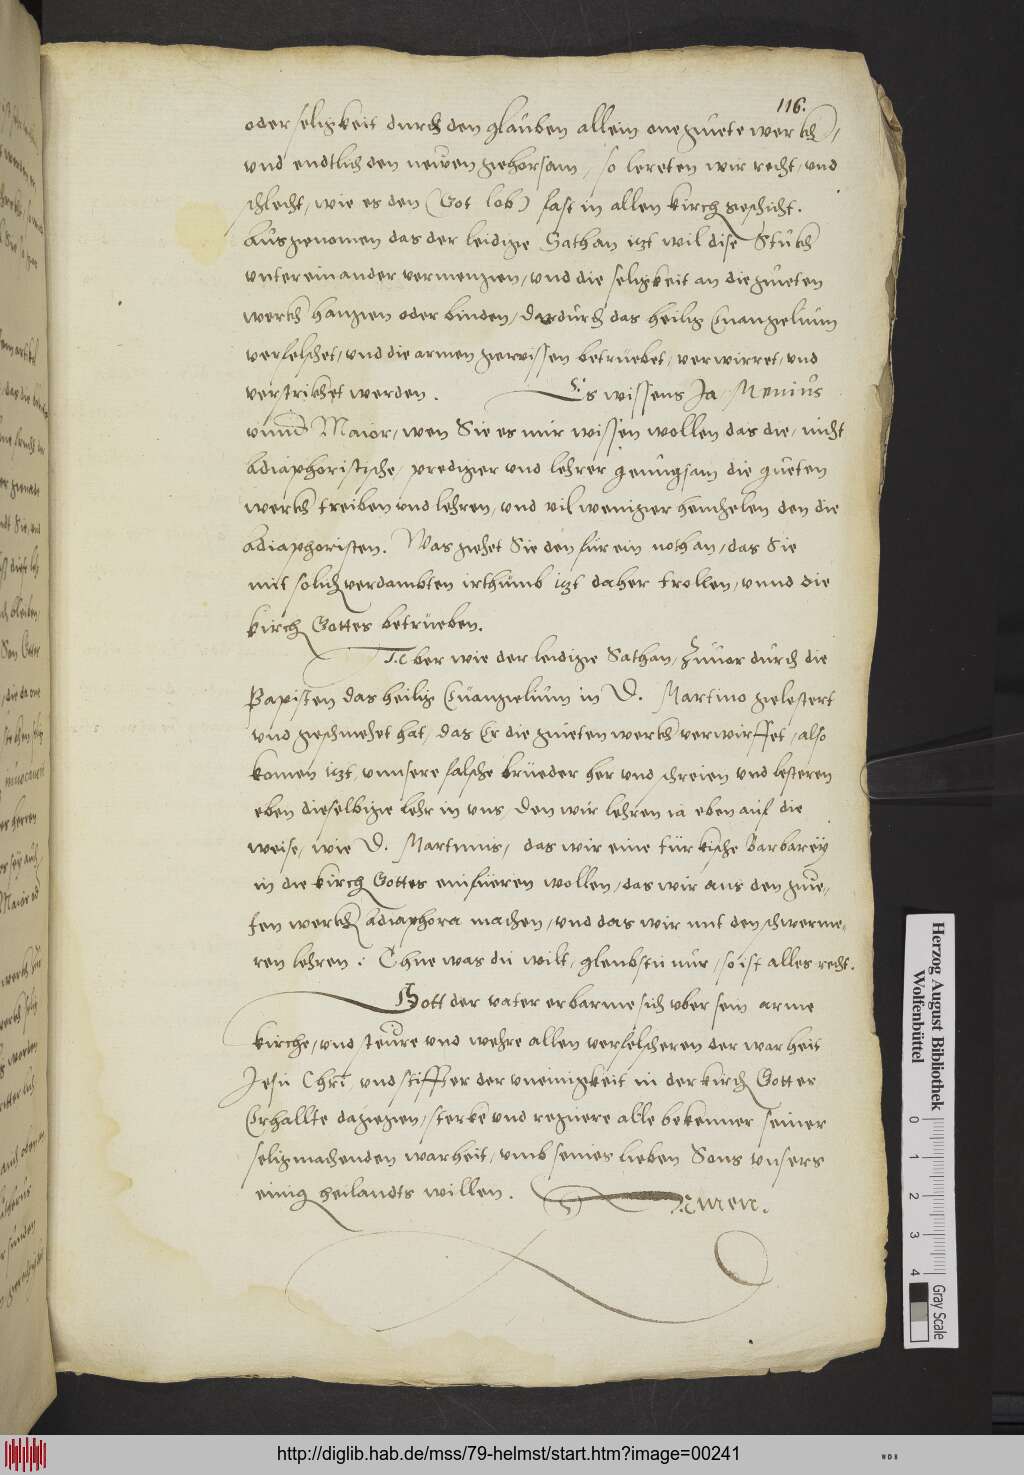 116.
oder seligkeit durch den glauben allein one guete werckh,
und endtlich den newen gehorsam, so lereten wir recht, und
schlecht, wie es den (Got lob) fast in allen kirchen geschicht.
Ausgenomen das der leidige Sathan itzt wil dise Stuckh
untereinander vermengen, und die seligkeit an die gueten
werckh hangen oder binden, dardurch das heilig Euangelium
verfelschet, und die armen gewissen betruebet, verwirret, und
verstrickhet werden. Es wissens Ja Menius
unnd Maior, wen Sie es nur wissen wollen das die, nicht
Adiaphoristische, prediger und lehrer genugsam die gueten
werckh treiben und lehren, und vil weniger heuchelen den die
Adiaphoristen. Was gehet Sie den fur ein noth an, das Sie
mit solchen verdambten irthumb itzt daher trollen, unnd die
kirchen Gottes betrueben.
Aber wie der leidige Sathan, zuuor durch die
Papisten das heilig Euangelium in D. Martino gelestert
und geschmehet hat, das Er die gueten werckh verwirffet, also
komen itzt unnsere falsche brueder her und schreien und lesteren
eben dieselbige lehr in uns, Den wir lehren ia eben auf die
weise, wie D. Martinus, das wir eine türkische barbarey
in die kirchen Gottes einfueren wollen, das wir aus den gue-
ten werckhen adiaphora machen, und das wir mit den schwerme-
ren lehren: Thue was du wilt, glaubstu nur, so ist alles recht.
Gott der vater erbarme sich uber sein arme
kirche, und steure und wehre allen verfelscheren der warheit
Jesu Chri, und stiffter der uneinigkeit in der kirchen Gottes
Erhallte dagegen, sterke und regiere alle bekenner seiner
seligmachenden warheit, umb seines lieben Sons unsers
einigen heilandts willen. Amen.
Herzog August Bibliothek
Wolfenbüttel
0 1 2 3 4
Gray Scale
http://diglib.hab.de/mss/79-helmst/start.htm?image=00241
WDB